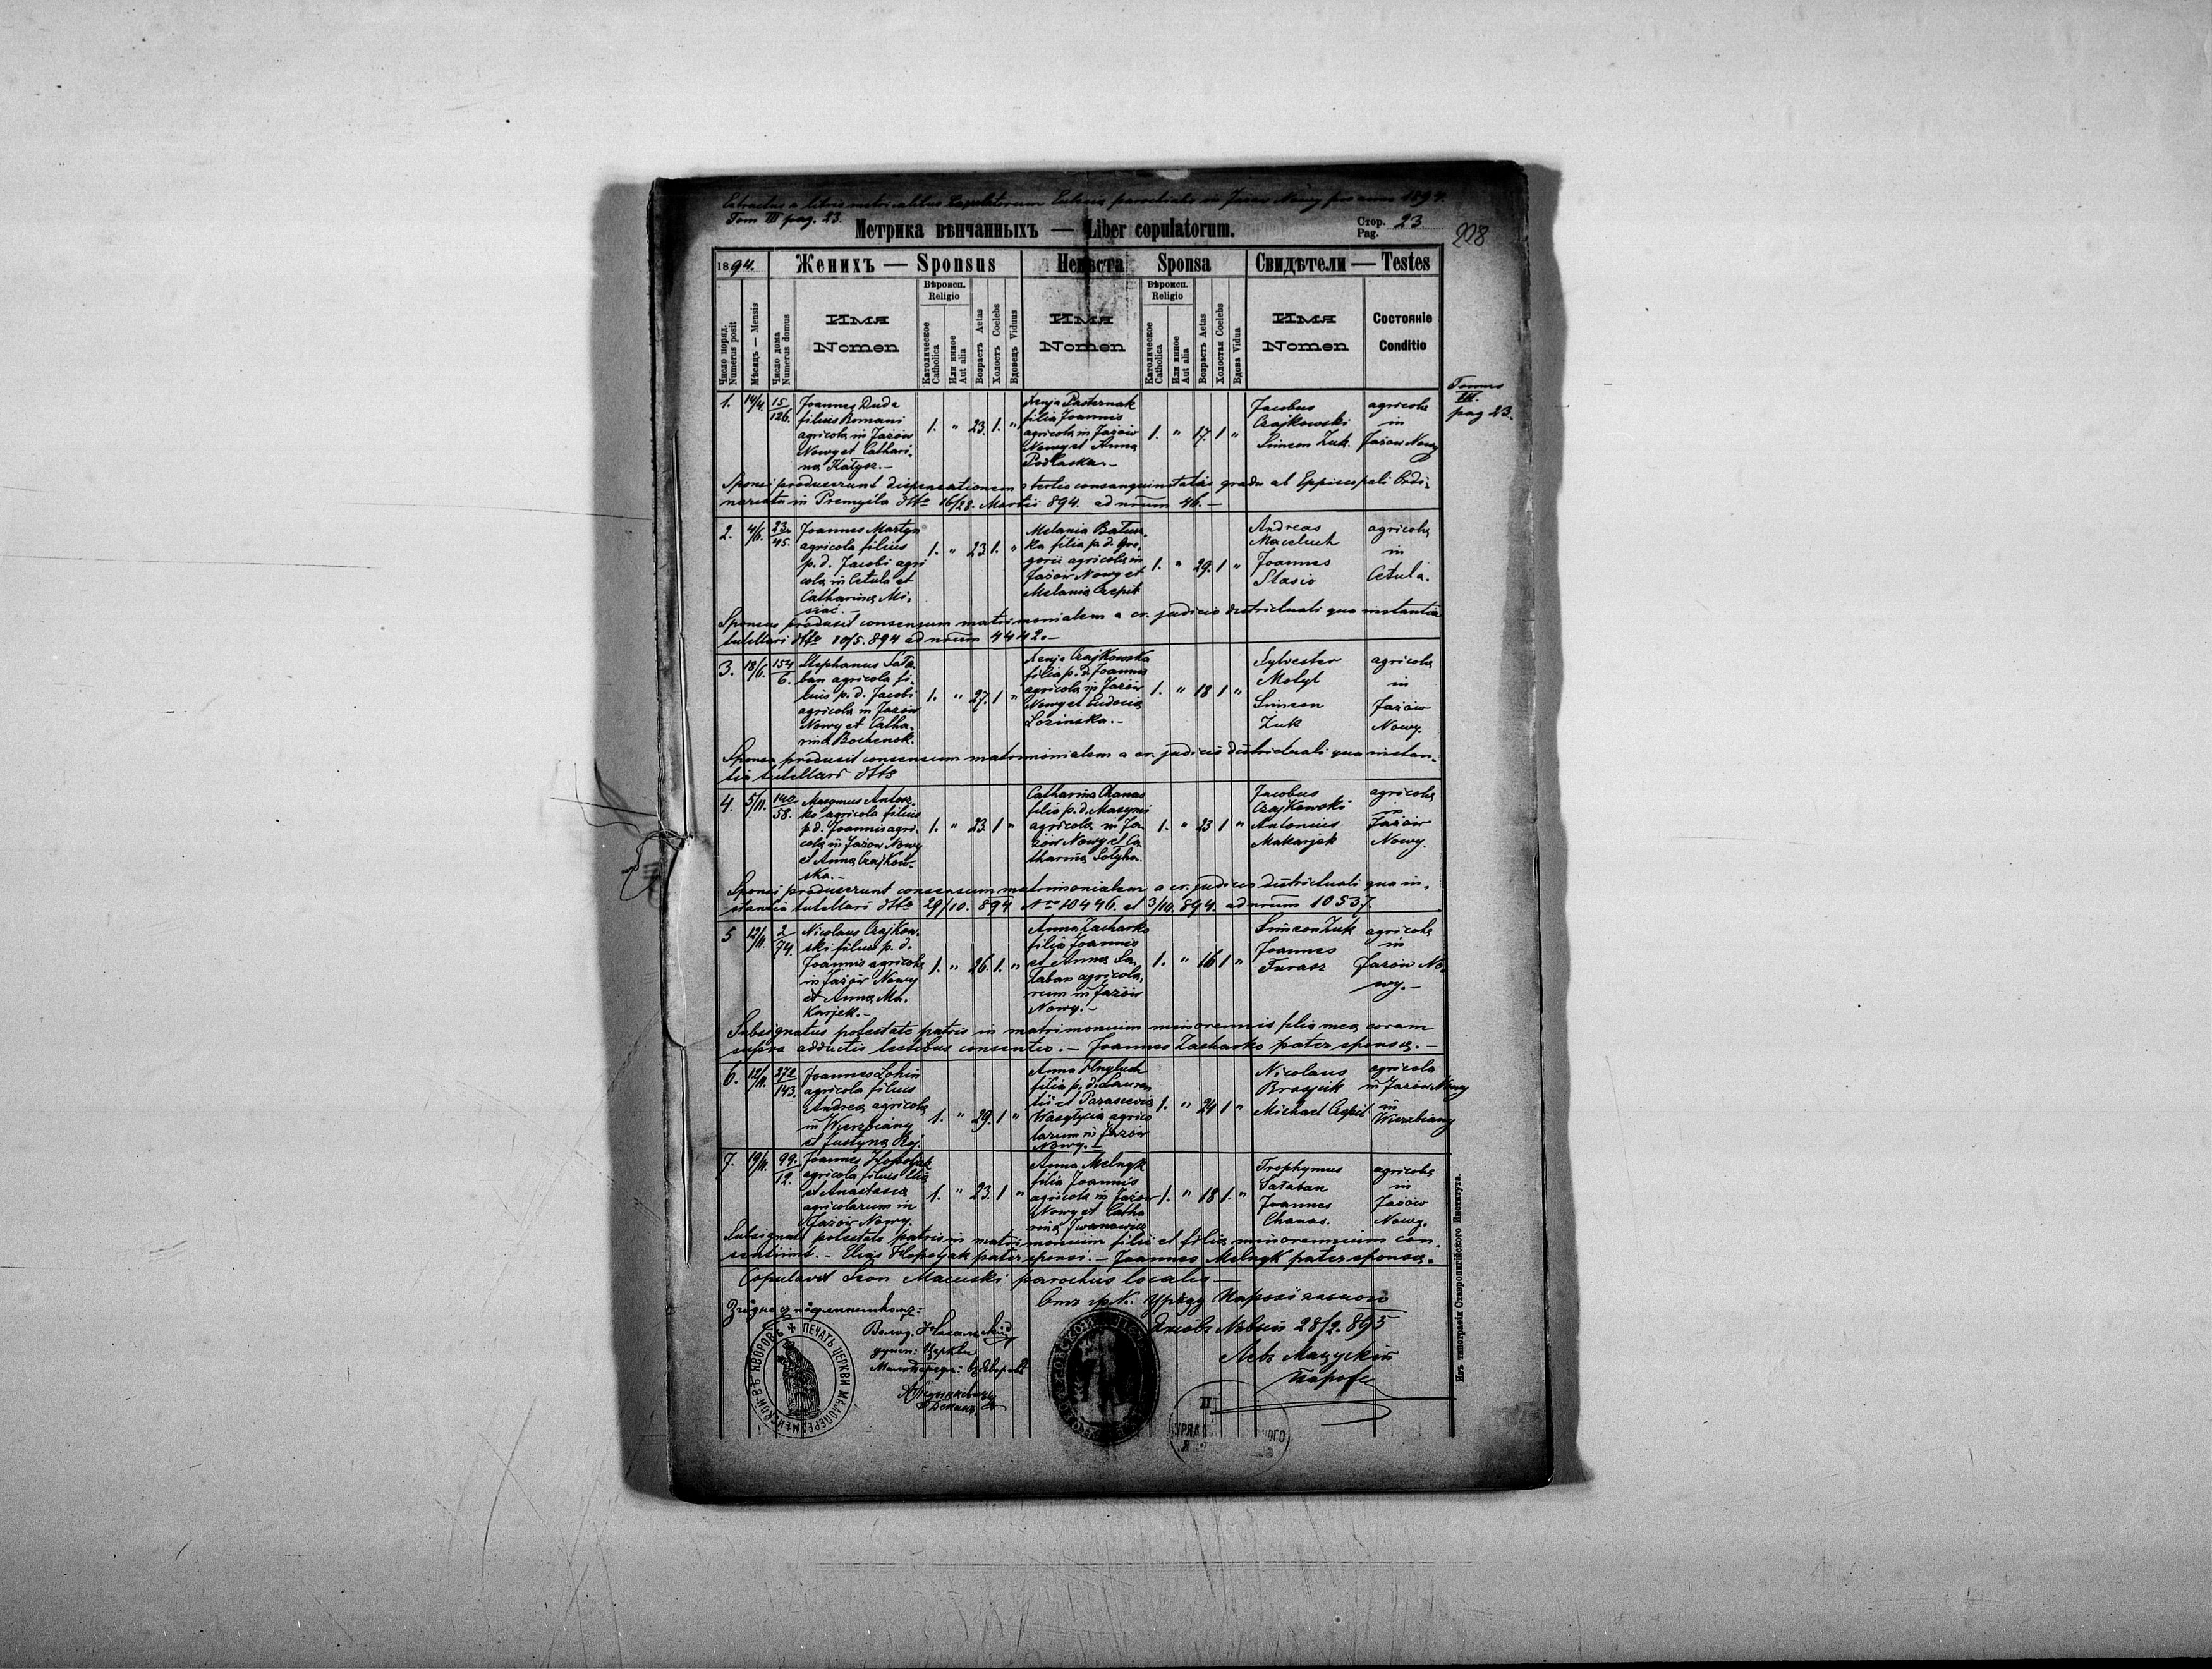 Extractus a libris metricalibus Copulatorum Ecclesiae parochialis in Jazow Nowy pro anno 1894.
Tom III pag. 23.
Метрика вѣнчанныхъ — Liber copulatorum.
Стор. Pag. 23
228
1894.
Женихъ — Sponsus
Невѣста Sponsa
Свидѣтели — Testes
Число поряд. Numerus posit
Мѣсяцъ — Mensis
Число дома Numerus domus
Имя Nomen
Вѣроисп. Religio
Католическое Catholica
Или инное Aut alia
Возрастъ Aetas
Холостъ Coelebs
Вдовецъ Viduus
Имя Nomen
Вѣроисп. Religio
Католическое Catholica
Или инное Aut alia
Возрастъ Aetas
Холостая Coelebs
Вдова Vidua
Имя Nomen
Состояніе Conditio
Tomus
III.
pag 23.
1. 14/4. 15/126.
Joannes Duda
filius Romani
agricola in Jazów
Nowy et Cathari-
na Katysz.—
1. " 23. 1. "
Xenja Pasternak
filia Joannis
agricola in Jazów
Nowy et Anna
Podlaska.—
1. " 17. 1 "
Jacobus
Czajkowski
Simeon Żuk.
agricola
in
Jazów Nowy
Sponsi produxerunt dispensationem tertio consanguinitatis gradu ab Eppiscopali Ordi-
nariatu in Premyslia dtto 16/28. Martii 894. ad nrum 46.—
2. 4/6. 23/45.
Joannes Martyn
agricola filius
p. d. Jacobi agri
cola in Cetula et
Catharina Mi-
siać.—
1. " 23 1. "
Melania
filia p. d. Gre-
gorii agricola in
Jazów Nowy et
Melania Czepit
1. " 29. 1 "
Andreas
Maceluch
Joannes
Stasio
agricola
in
Cetula.
Sponsus produxit consensum matrimonialem a cr. judicio districtuali qua instantia
tutellari dtto 10/5. 894 ad nrum 4442.—
3. 18/6. 154/6.
Stephanus Sała
ban agricola fi-
lius p. d. Jacobi
agricola in Jazów
Nowy et Catha-
rina Bochenok.
1. " 27. 1 "
Xenja Czajkowska
filia p. d. Joannis
agricola in Jazów
Nowy et Eudocia
Łozinska.—
1. " 18 1 "
Sylvester
Motyl
Simeon
Żuk
agricola
in
Jazów
Nowy.
Sponsa produxit consensum matrimonialem a cr. judicio districtuali qua instan-
tia tutellari dtto
4. 5/11. 140/58.
Maxymus Antosz-
ko agricola filius
p. d. Joannis agri-
cola in Jazow Nowy
et Anna Czajkow-
ska.—
1. " 23. 1 "
Catharina Chanas
filia p. d. Maxymi
agricola in Ja
zów Nowy et Ca
tharina Sołyha.
1. " 23 1 "
Jacobus
Czajkowski
Antonius
Makarjek
agricola
in
Jazów
Nowy.
Sponsi produxerunt consensum matrimonialem a cr. judicio districtuali qua in-
stantia tutellari dtto 29/10. 894 Nro 10446. et 3/10. 894. ad nrum 10537.
5 12/11. 2/74.
Nicolaus Czajkow-
ski filius p. d.
Joannis agricola
in Jazów Nowy
et Anna Ma-
karjek.—
1. " 26. 1. "
Anna Zacharko
filia Joannis
et Anna Sa-
łaban agricola-
rum in Jazów
Nowy.—
1. " 16 1 "
Simeon Żuk
Joannes
Furasz
agricola
in
Jazów No-
wy.—
Subsignatus potestate patris in matrimonium minorennis filia mea coram
supra adductis testibus consentio.— Joannes Zacharko pater sponsa.—
6. 12/11. 272/143.
Joannes Lohin
agricola filius
Andrea agricola
in Wierzbiany
et Justyna Roj.
1. " 29. 1 "
Anna Hnyluch
filia p. d. Lauren
tii et Parascevia
Wasylycia agrico
larum in Jazów
Nowy.—
1. " 24 1 "
Nicolaus
Michael Czepit
agricola
in Jazów Nowy
in
Wierzbiany
7. 19/11. 99./12.
Joannes Hopoljak
agricola filius Elia
et Anastasia
agricolarum in
Jazów Nowy.
1. " 23. 1 "
Anna Melnyk
filia Joannis
agricola in Jazów
Nowy et Catha
rina Iwanowicz
1. " 18 1. "
Trophymus
Sałaban
Joannes
Chanas.
agricola
in
Jazów
Nowy.
Subsignati potestate patris in matrimonium filii et filia minorennium con-
sentiunt.— Elias Hopoljak pater sponsi.— Joannes Melnyk pater sponsa.
Copulavit Leon Macuski parochus localis—
Отъ гр. к. Уряду Парохіального
Язовъ Новый 28/2. 895
Левъ Мацускій
парохъ
ПЕЧАТЬ ЦЕРКВИ МАЛОПЕРЕДМѢЙСКОИ ВЪ ЯВОРОВѢ
Изъ типографіи Ставропигійского Института.